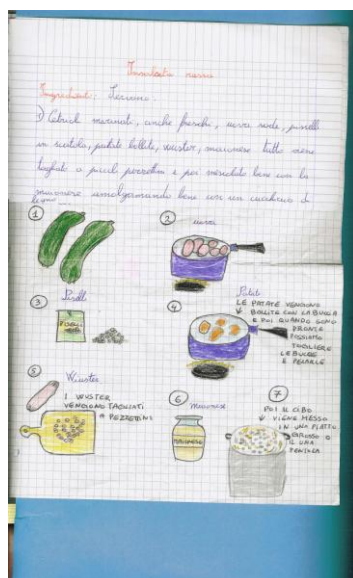 Insalata russa
Ingredienti:
1) Cetrioli marinati, anche freschi, uova sode, piselli
in scatola, patate bollite, wuster, maionese tutto viene
tagliato a piccoli pezzettini e poi mescolato bene con la
maionese amalgamando bene con un cucchiaio di
legno
1
2 uova
3 Piselli
PISELLI
4 Patate
LE PATATE VENGONO
BOLLITE CON LA BUCCIA
E POI QUANDO SONO
PRONTE
POSSIAMO
TOGLIERE
LE BUCCE
E PELARLE
5 Wuster
I WUSTER
VENGONO TAGLIATI
A PEZZETTINI
6 Maionese
MAIONESE
7
POI IL CIBO
VIENE MESSO
IN UNA PIATTO
GROSSO O
UNA
PENTOLA